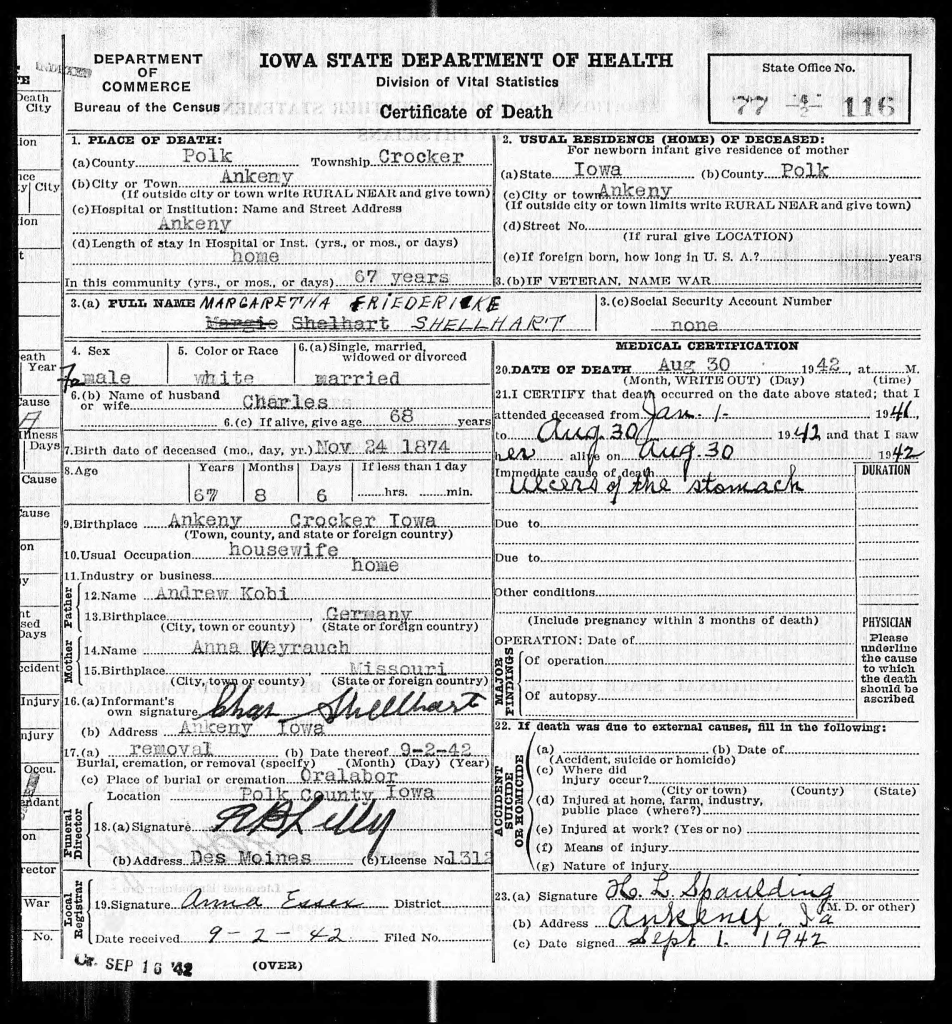 DEPARTMENT
OF
COMMERCE
Bureau of the Census
IOWA STATE DEPARTMENT OF HEALTH
Division of Vital Statistics
Certificate of Death
State Office No.
77 116
1. PLACE OF DEATH:
(a) County Polk Township Crocker
(b) City or Town Ankeny
(If outside city or town write RURAL NEAR and give town)
(c) Hospital or Institution: Name and Street Address
Ankeny
(d) Length of stay in Hospital or Inst. (yrs., or mos., or days)
home
In this community (yrs., or mos., or days) 67 years
2. USUAL RESIDENCE (HOME) OF DECEASED:
For newborn infant give residence of mother
(a) State Iowa (b) County Polk
(c) City or town Ankeny
(If outside city or town limits write RURAL NEAR and give town)
(d) Street No.
(If rural give LOCATION)
(e) If foreign born, how long in U. S. A.? years
3.(b) IF VETERAN, NAME WAR
3.(a) FULL NAME MARGARETHA FRIEDERICKE
Margie Shelhart SHELLHART
3.(c) Social Security Account Number
none
4. Sex
Female
5. Color or Race
white
6.(a) Single, married,
widowed or divorced
married
6.(b) Name of husband
or wife Charles
6.(c) If alive, give age 68 years
7. Birth date of deceased (mo., day, yr.) Nov 24 1874
8. Age Years Months Days If less than 1 day
67 8 6 hrs. min.
9. Birthplace Ankeny Crocker Iowa
(Town, county, and state or foreign country)
10. Usual Occupation housewife
home
11. Industry or business
Father
12. Name Andrew Kobi
13. Birthplace , Germany
(City, town or county) (State or foreign country)
Mother
14. Name Anna Weyrauch
15. Birthplace Missouri
(City, town or county) (State or foreign country)
16.(a) Informant's
own signature Chas Shellhart
(b) Address Ankeny Iowa
17.(a) removal (b) Date thereof 9-2-42
Burial, cremation, or removal (specify) (Month) (Day) (Year)
(c) Place of burial or cremation Oralabor
Location Polk County Iowa
Funeral Director
18.(a) Signature
(b) Address Des Moines (c) License No. 1312
Local Registrar
19. Signature Anna Essex District
Date received 9-2-42 Filed No.
SEP 16 '42
(OVER)
MEDICAL CERTIFICATION
20. DATE OF DEATH Aug 30 1942, at M.
(Month, WRITE OUT) (Day) (time)
21. I CERTIFY that death occurred on the date above stated; that I
attended deceased from Jan. 1- 1941,
to Aug. 30 1942 and that I saw
her alive on Aug. 30 1942
Immediate cause of death DURATION
Ulcers of the stomach
Due to
Due to
Other conditions
(Include pregnancy within 3 months of death)
OPERATION: Date of
MAJOR FINDINGS
Of operation
Of autopsy
PHYSICIAN
Please
underline
the cause
to which
the death
should be
ascribed
22. If death was due to external causes, fill in the following:
ACCIDENT
SUICIDE
OR HOMICIDE
(a) (b) Date of
(Accident, suicide or homicide)
(c) Where did
injury occur?
(City or town) (County) (State)
(d) Injured at home, farm, industry,
public place (where?)
(e) Injured at work? (Yes or no)
(f) Means of injury
(g) Nature of injury
23.(a) Signature H. L Spaulding
(M. D. or other)
(b) Address Ankeny, Ia
(c) Date signed Sept. 1. 1942